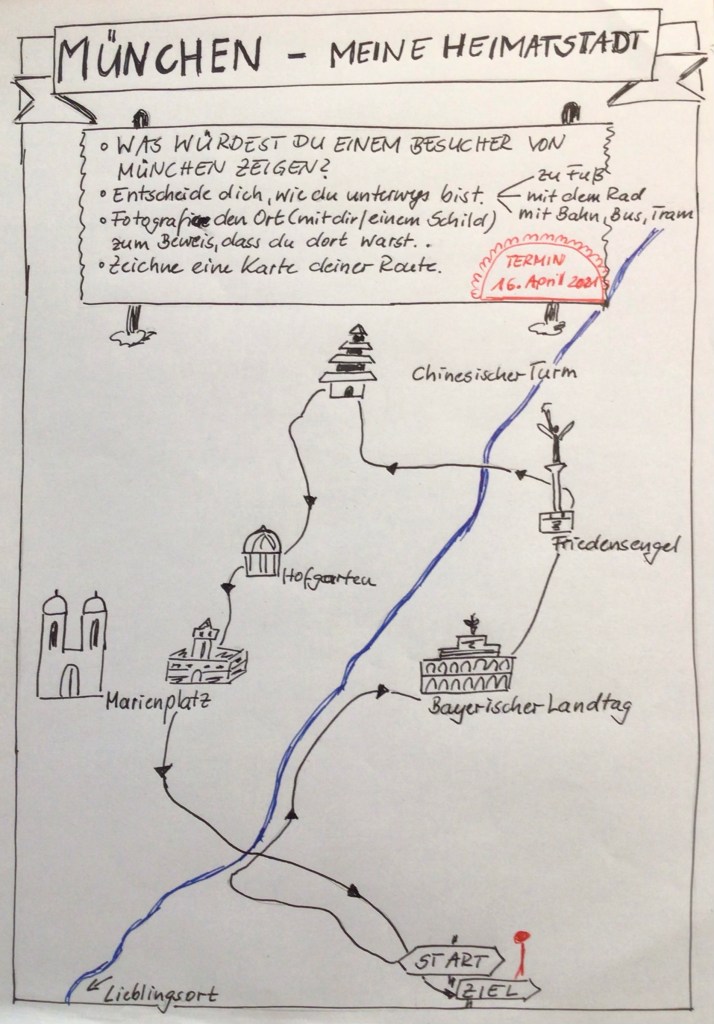 MÜNCHEN – MEINE HEIMATSTADT
• WAS WÜRDEST DU EINEM BESUCHER VON
MÜNCHEN ZEIGEN?
• Entscheide dich, wie du unterwegs bist.
zu Fuß
mit dem Rad
mit Bahn, Bus, Tram
• Fotografiere den Ort (mit dir/einem Schild)
zum Beweis, dass du dort warst..
• Zeichne eine Karte deiner Route.
TERMIN
16. April 2021
Chinesischer Turm
Friedensengel
Hofgarten
Marienplatz
Bayerischer Landtag
START
ZIEL
Lieblingsort